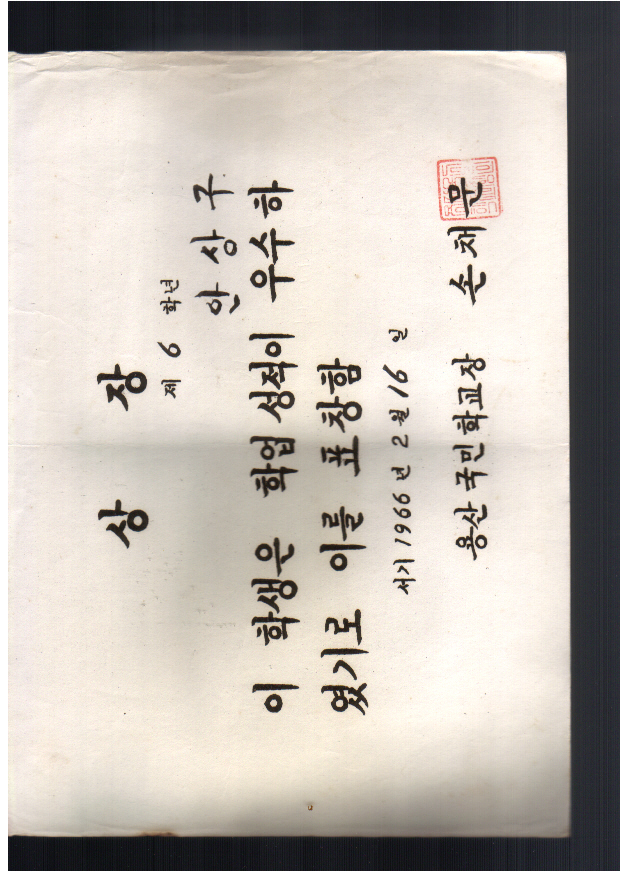 상 장
제 6 학년
안 상 구
이 학생은 학업 성적이 우수하
였기로 이를 표창함
서기 1966 년 2 월 16 일
용산 국민학교장 손채문